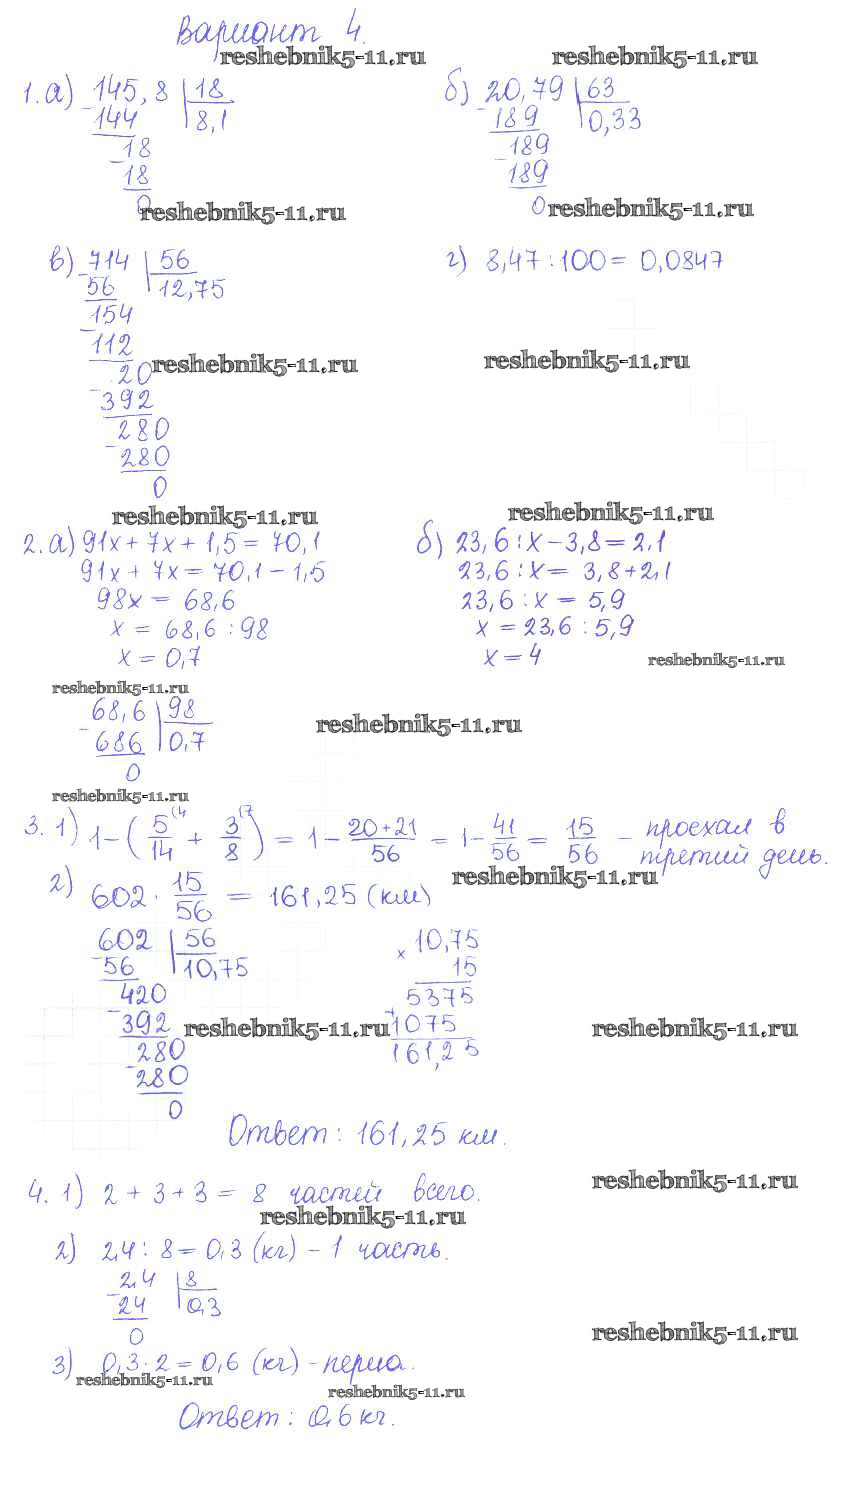 Вариант 4.
reshebnik5-11.ru reshebnik5-11.ru
1. а) 145,8 | 18 б) 20,79 | 63
- 144 8,1 - 189 0,33
18 189
- 18 - 189
0 0
reshebnik5-11.ru reshebnik5-11.ru
в) 714 | 56 г) 8,47 : 100 = 0,0847
- 56 12,75
154
- 112
reshebnik5-11.ru reshebnik5-11.ru
20
- 392
280
- 280
0
reshebnik5-11.ru reshebnik5-11.ru
2. а) 91x + 7x + 1,5 = 70,1 б) 23,6 : x - 3,8 = 2,1
91x + 7x = 70,1 - 1,5 23,6 : x = 3,8 + 2,1
98x = 68,6 23,6 : x = 5,9
x = 68,6 : 98 x = 23,6 : 5,9
x = 0,7 x = 4
reshebnik5-11.ru
reshebnik5-11.ru
68,6 | 98
- 686 0,7
0
reshebnik5-11.ru
reshebnik5-11.ru
3. 1) 1 - (5/14 (4 + 3/8 (7) = 1 - 20+21/56 = 1 - 41/56 = 15/56 - проехал в
третий день.
reshebnik5-11.ru
2) 602 · 15/56 = 161,25 (км)
602 | 56 × 10,75
- 56 10,75 15
420 5375
- 392 + 1075
280 161,25
- 280
0
reshebnik5-11.ru reshebnik5-11.ru
Ответ : 161,25 км.
4. 1) 2 + 3 + 3 = 8 частей всего.
reshebnik5-11.ru
reshebnik5-11.ru
2) 2,4 : 8 = 0,3 (кг) - 1 часть.
2,4 | 8
- 24 0,3
0
reshebnik5-11.ru
3) 0,3 · 2 = 0,6 (кг) - перца.
reshebnik5-11.ru
reshebnik5-11.ru
Ответ : 0,6 кг.